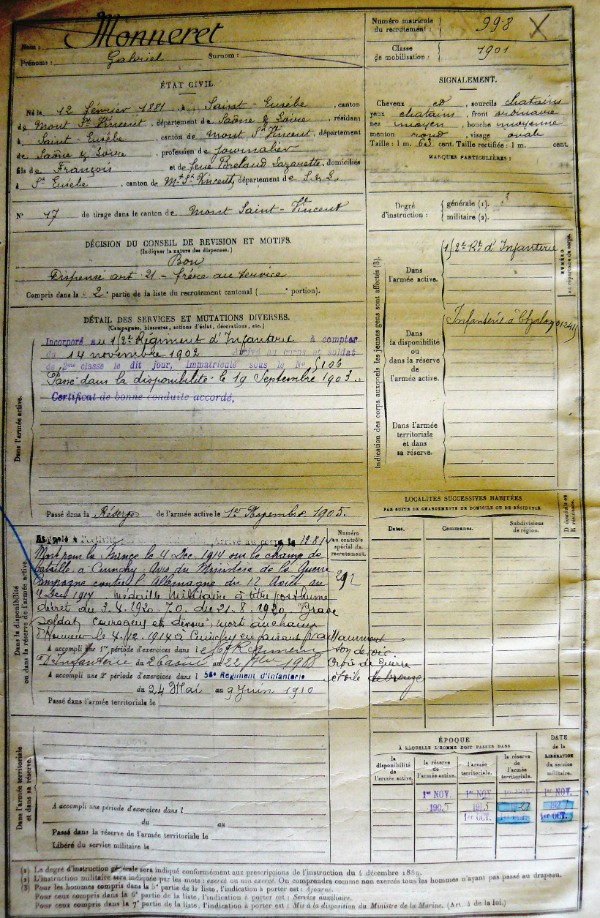 Nom : Monneret
Prénoms : Gabriel Surnoms :
Numéro matricule du recrutement : 998
Classe de mobilisation : 1901
ÉTAT CIVIL
Né le 12 février 1881 à Saint-Eusèbe, canton
de Mont St Vincent, département de Saône & Loire, résidant
à Saint-Eusèbe, canton de Mont St Vincent, département
de Saône & Loire, profession de journalier
fils de François et de, domiciliés
à St Eusèbe, canton de Mt St Vincent, département de S. & L.
N° 17 de tirage dans le canton de Mont Saint-Vincent
SIGNALEMENT.
Cheveux et, sourcils chatains
yeux chatains, front ordinaire
nez moyen, bouche moyenne
menton rond, visage ovale
Taille : 1 m. cent. Taille rectifiée : 1 m. cent.
MARQUES PARTICULIÈRES :
Degré d'instruction : générale (1).
militaire (2).
DÉCISION DU CONSEIL DE REVISION ET MOTIFS.
(Indiquer la nature des dispenses.)
Bon
Dispensé art. 21 - frère au service
Compris dans la 2e partie de la liste du recrutement cantonal ( portion).
DÉTAIL DES SERVICES ET MUTATIONS DIVERSES.
(Campagnes, blessures, actions d'éclat, décorations, etc.)
Incorporé au Régiment d'Infanterie à compter
du 14 novembre 1902 Arrivé au corps et soldat
de 2ème classe le dit jour, immatriculé sous le N° 5106
Passé dans la disponibilité le 19 Septembre 1903.
Certificat de bonne conduite accordé.
Dans l'armée active.
Passé dans la Réserve de l'armée active le 1er Novembre 1905.
Indication des corps auxquels les jeunes gens sont affectés (3).
Dans l'armée active.
Rt d'Infanterie
Dans la disponibilité ou dans la réserve de l'armée active.
Infanterie à Chalon
Dans l'armée territoriale et dans sa réserve.
LOCALITÉS SUCCESSIVES HABITÉES
PAR SUITE DE CHANGEMENTS DE DOMICILE OU DE RÉSIDENCE.
Dates. Communes. Subdivisions de région.
Dans la disponibilité ou dans la réserve de l'armée active.
Numéro au contrôle spécial du recrutement.
Rappelé à l'activité Arrivé au corps le
Mort pour la France le 4 Dec 1914 sur le champ de
bataille à Cuinchy. Avis du Ministère de la Guerre
Campagne contre l'Allemagne du 12 Août au
4 Dec 1914 Médaille Militaire à titre posthume
décret du J.O. du 21.8.1920 "Brave
soldat, courageux et dévoué, mort au champ
d'honneur le 4.12.1914 à Cuinchy en faisant
A accompli une 1re période d'exercices dans le
d'Infanterie du 26 au 22 1908 Croix de Guerre
A accompli une 2e période d'exercices dans l 56e Régiment d'Infanterie étoile de bronze
du 24 Mai au 9 Juin 1910
Passé dans l'armée territoriale le
Dans l'armée territoriale et dans sa réserve.
A accompli une période d'exercices dans l
du au
Passé dans la réserve de l'armée territoriale le
Libéré du service militaire le
ÉPOQUE
À LAQUELLE L'HOMME DOIT PASSER DANS
DATE de la LIBÉRATION du service militaire.
la disponibilité de l'armée active. la réserve de l'armée active. l'armée territoriale. la réserve de l'armée territoriale.
1er NOV. 1er NOV. 1er NOV. 1er NOV.
1er OCT. 1er OCT.
(1) Le degré d'instruction générale sera indiqué conformément aux prescriptions de l'instruction du 4 décembre 1889.
(2) L'instruction militaire sera indiquée par les mots : exercé ou non exercé. On comprendra comme non exercés tous les hommes n'ayant pas passé au drapeau.
(3) Pour les hommes compris dans la 5e partie de la liste, l'indication à porter est : Ajourné.
Pour ceux compris dans la 6e partie de la liste, l'indication à porter est : Service auxiliaire.
Pour ceux compris dans la 7e partie de la liste, l'indication à porter est : Mis à la disposition du Ministre de la Marine. (Art. 4 de la loi.)